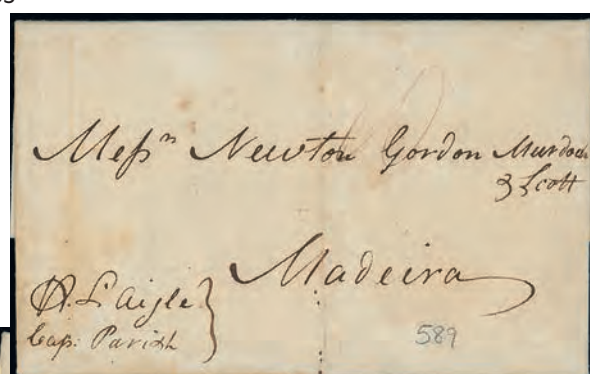 Messrs Newton Gordon Murdoch
& Scott
Madeira
L'aigle
Cap: Parish
589